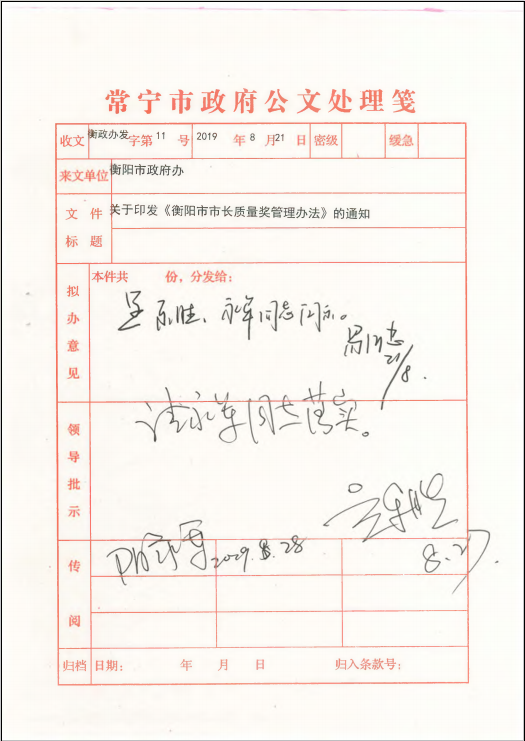 常宁市政府公文处理笺
收文 衡政办发 字第 11 号 2019 年 8 月 21 日 密级 缓急
来文单位 衡阳市政府办
文件标题 关于印发《衡阳市市长质量奖管理办法》的通知
拟办意见 本件共 份，分发给：
呈 东胜、永军同志阅示。
21/8.
领导批示
请永军同志落实。
8.27.
传阅
2019.8.28
归档 日期： 年 月 日 归入条款号：